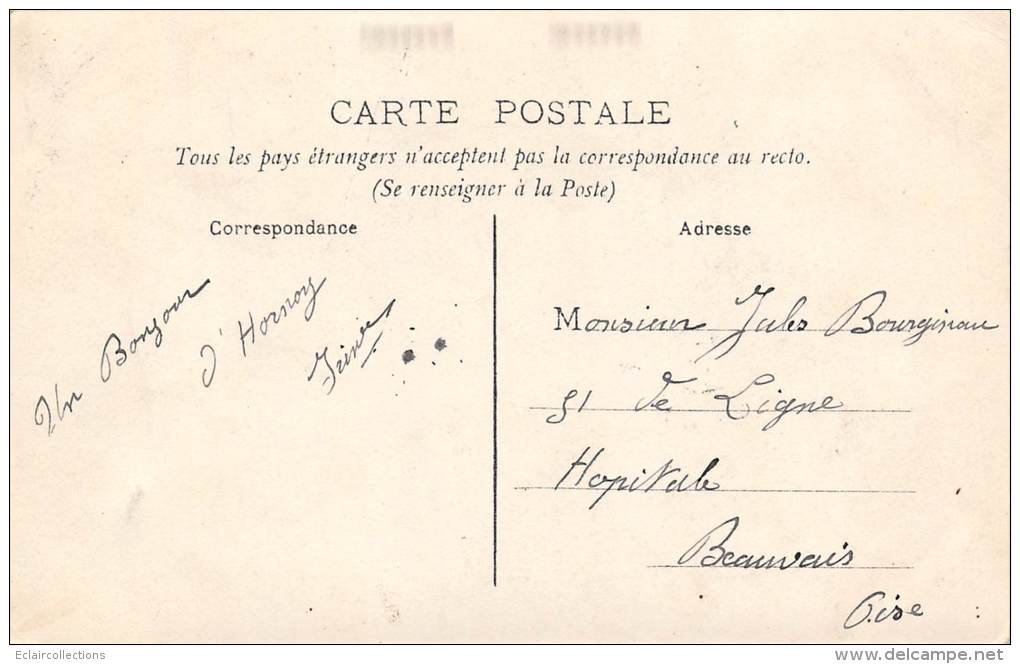 CARTE POSTALE
Tous les pays étrangers n'acceptent pas la correspondance au recto.
(Se renseigner à la Poste)
Correspondance
Un Bonjour
d'Hornoy
Irénée
Adresse
Monsieur Jules Bourgineau
51 de Ligne
Hopitale
Beauvais
Oise
Eclaircollections
www.delcampe.net